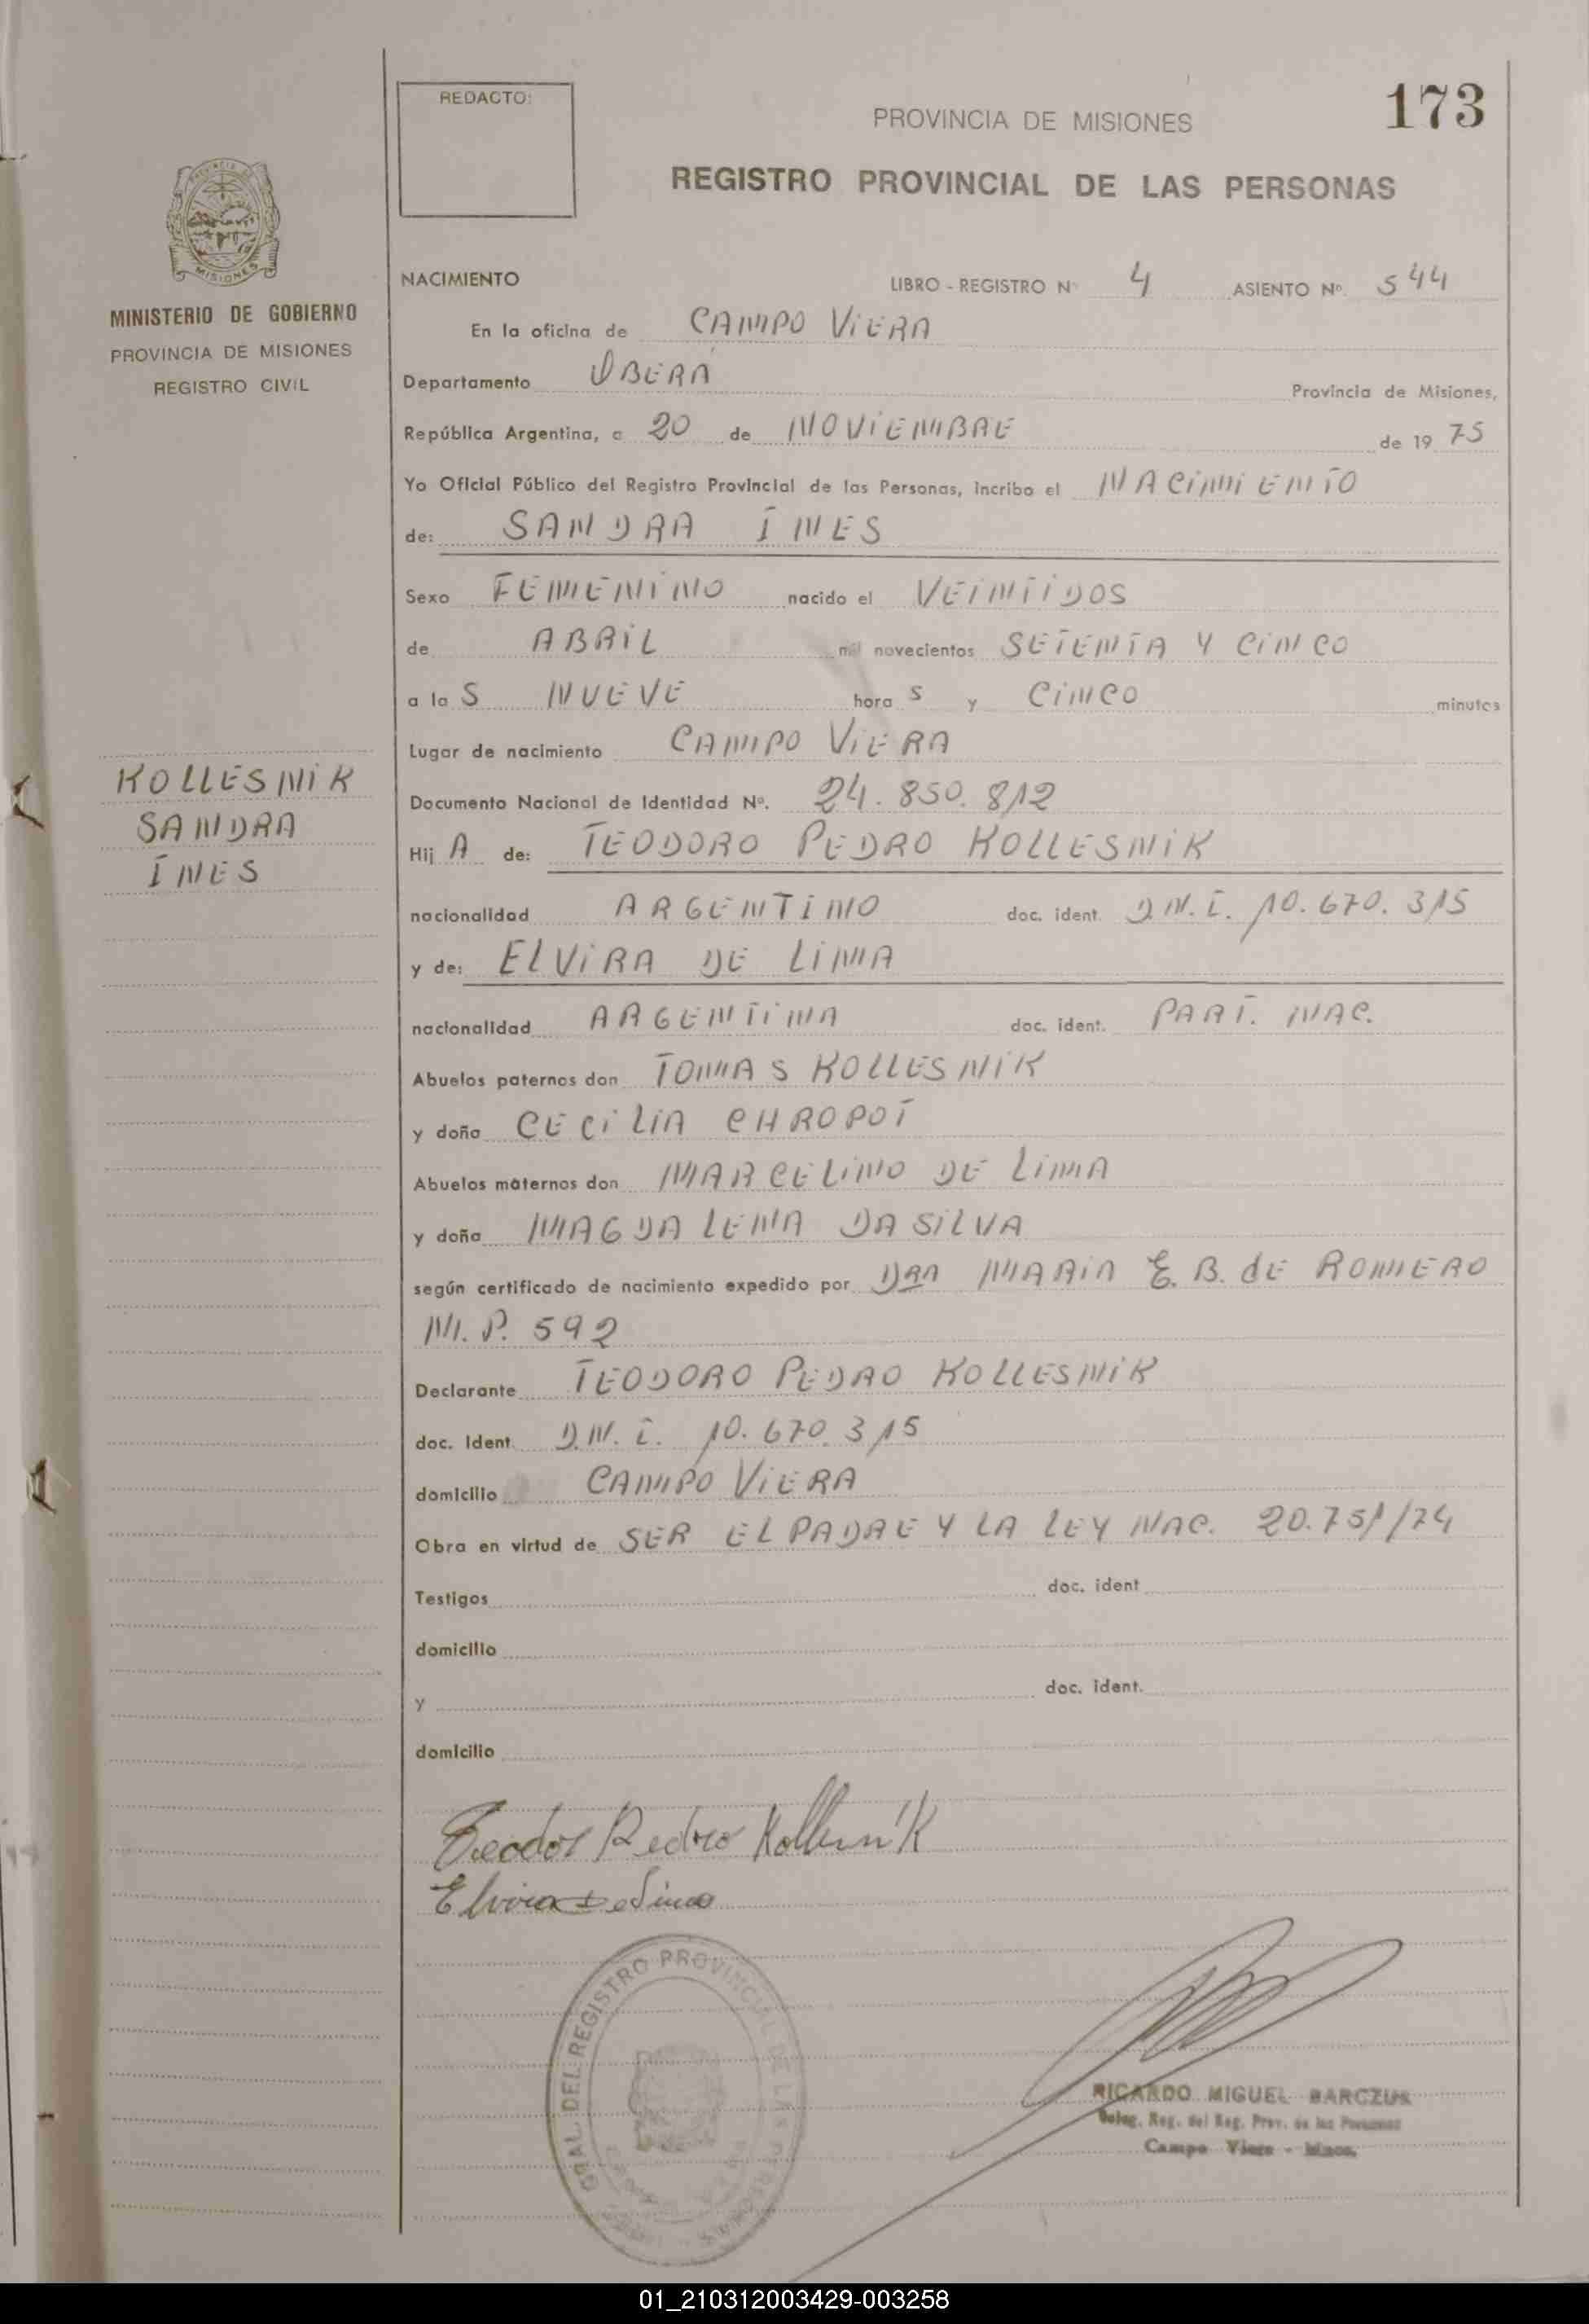 REDACTO:
173
PROVINCIA DE MISIONES
REGISTRO PROVINCIAL DE LAS PERSONAS
MISIONES
MINISTERIO DE GOBIERNO
PROVINCIA DE MISIONES
REGISTRO CIVIL
KOLLESNIK
SANDRA
INES
NACIMIENTO LIBRO - REGISTRO Nº 4 ASIENTO Nº. 544
En la oficina de CAMPO VIERA
Departamento OBERÁ Provincia de Misiones,
República Argentina, a 20 de NOVIEMBRE de 19 75
Yo Oficial Público del Registro Provincial de las Personas, incribo el NACIMIENTO
de: SANDRA INES
Sexo FEMENINO nacido el VEINTIDOS
de ABRIL mil novecientos SETENTA Y CINCO
a la S NUEVE hora S y CINCO minutos
Lugar de nacimiento CAMPO VIERA
Documento Nacional de Identidad Nº. 24.850.812
Hij A de: TEODORO PEDRO KOLLESNIK
nacionalidad ARGENTINO doc. ident. D.N.I. 10.670.315
y de: ELVIRA DE LIMA
nacionalidad ARGENTINA doc. ident. PART. NAC.
Abuelos paternos don TOMAS KOLLESNIK
y doña CECILIA CHROPOT
Abuelos maternos don MARCELINO DE LIMA
y doña MAGDALENA DASILVA
según certificado de nacimiento expedido por DRA MARIA E. B. dE ROMERO
M. P. 592
Declarante TEODORO PEDRO KOLLESNIK
doc. Ident. D.N.I. 10.670.315
domicilio CAMPO VIERA
Obra en virtud de SER EL PADRE Y LA LEY NAC. 20.751/74
Testigos doc. ident
domicilio
y doc. ident.
domicilio
Teodor Pedro Kollesnik
Elvira De Lima
GRAL. DEL REGISTRO PROVINCIAL DE LAS PERSONAS
RICARDO MIGUEL BARCZUK
Deleg. Reg. del Reg. Prov. de las Personas
Campo Viera - Mnes.
01_210312003429-003258